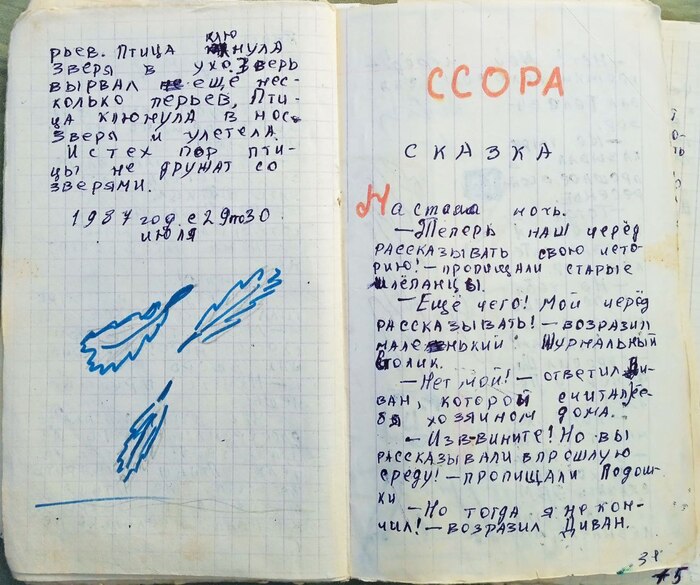 рьев. Птица клюнула
зверя в ухо. Зверь
вырвал ещё нес-
колько перьев, Пти-
ца клюнула в нос
зверя и улетела.
И с тех пор пти-
цы не дружат со
зверями.
1987 год с 29 по 30
июля
ССОРА
СКАЗКА
Настала ночь.
—Теперь наш черёд
рассказывать свою исто-
рию!—пропищали старые
шлёпанцы.
—Ещё чего! Мой черёд
рассказывать!—возразил
маленький Журнальный
столик.
—Нет мой!—ответил Ди-
ван, которой считал се-
бя хозяином дома.
—Извините! Но вы
рассказывали в прошлую
среду!—пропищали Подош-
ки
—Но тогда я не кон-
чил!—возразил Диван.